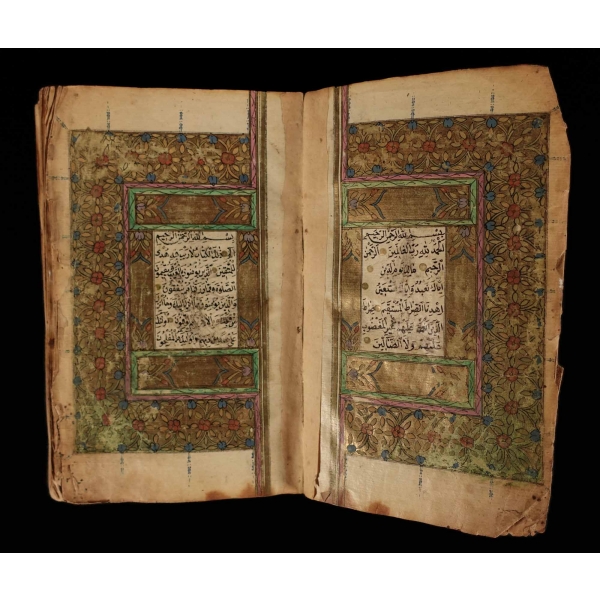 بسم الله الرحمن الرحيم
الحمد لله رب العالمين الرحمن
الرحيم مالك يوم الدين
اياك نعبد واياك نستعين
اهدنا الصراط المستقيم صراط
الذين انعمت عليهم غير المغضوب
عليهم ولا الضالين
بسم الله الرحمن الرحيم
الم ذلك الكتاب لا ريب فيه هدى
للمتقين الذين يؤمنون بالغيب ويقيمون
الصلوة ومما رزقناهم ينفقون
والذين يؤمنون بما انزل اليك وما انزل
من قبلك وبالاخرة هم يوقنون اولئك
على هدى من ربهم واولئك هم المفلحون